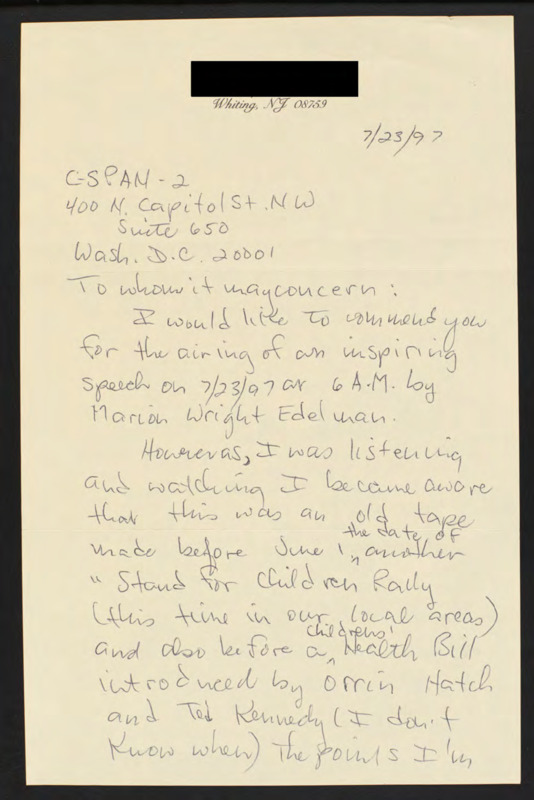 Whiting, NJ 08759
7/23/97
C-SPAN-2
400 N. Capitol St. NW
Suite 650
Wash. D.C. 20001
To whom it may concern:
I would like to commend you
for the airing of an inspiring
speech on 7/23/97 at 6 A.M. by
Marion Wright Edelman.
However as, I was listening
and watching I became aware
that this was an old tape
made before June 1, the date of another
" Stand for Children Rally
(this time in our local areas)
and also before a childrens' Health Bill
introduced by Orrin Hatch
and Ted Kennedy (I don't
know when) The points I'm